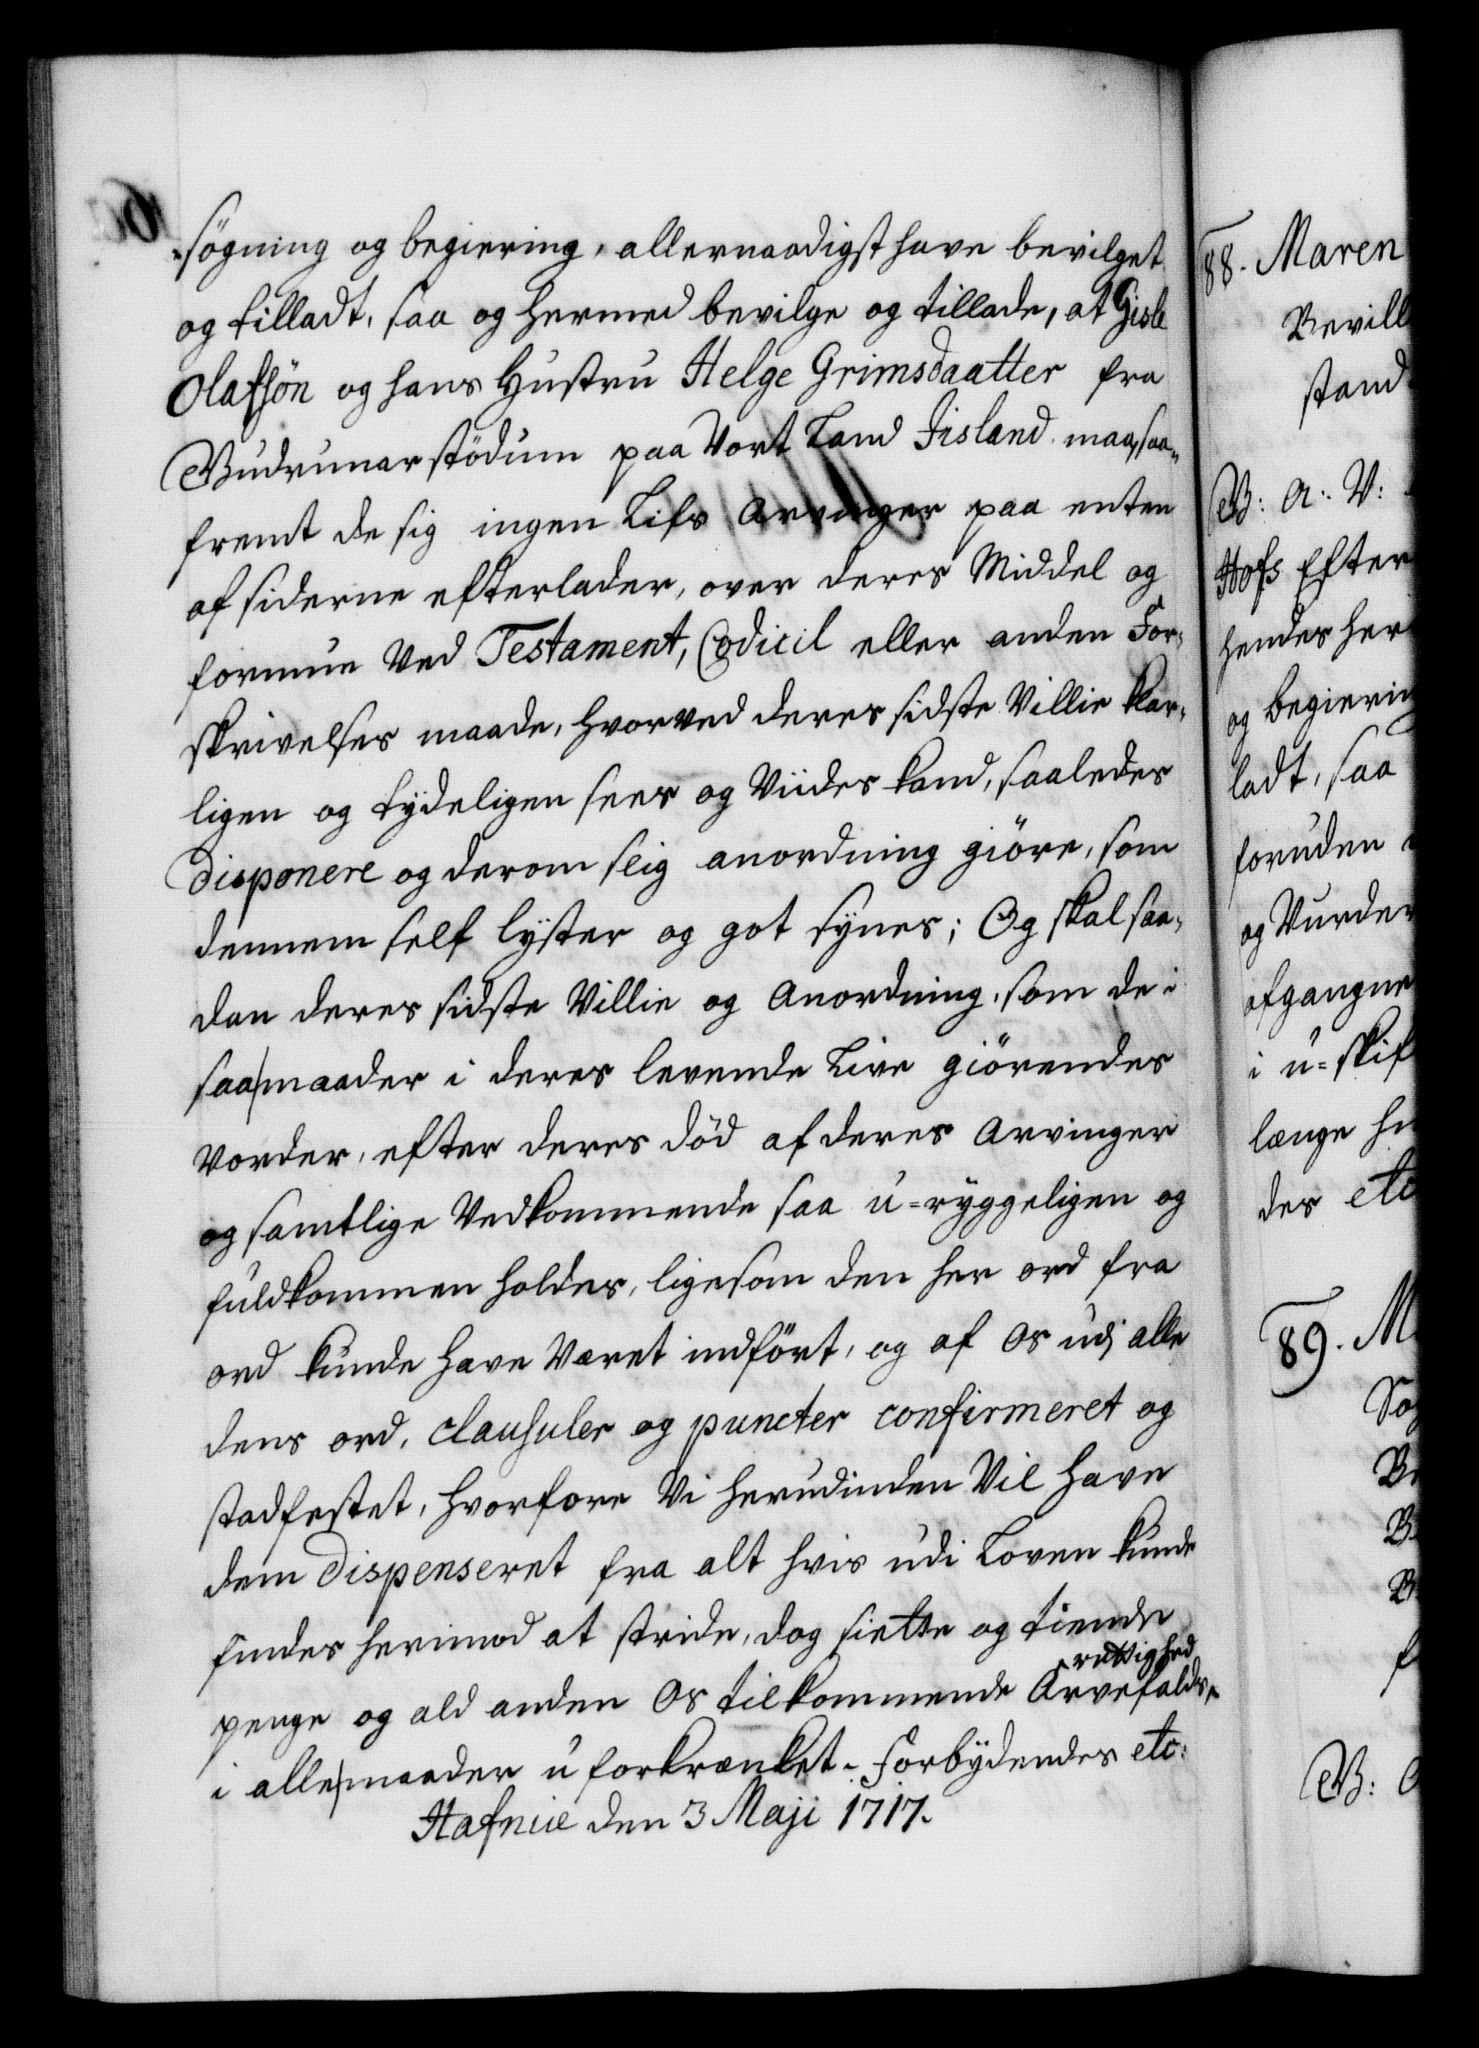 -søgning og begiering, allernaadigst have bevilget
og tilladt, saa og hermed bevilge og tillade, at Gisle
Olafsøn og hans Hustru Helge Grimsdaatter fra
Gudrunarstödum paa Vort Land Jisland maa, saa-
fremt de sig ingen Lifs Arvinger paa enten
af siderne efterlader, over deres Middel og
formue Ved Testament, Codicil eller anden For-
skrivelses maade, hvorved deres sidste Villie klar-
ligen og tydeligen sees og Viides kand, saaledes
disponere og derom slig anordning giöre, som
dennem self lyster og got synes; Og skal saa-
dan deres sidste Villie og Anordning, som de i
saa maader i deres levende Live giörendes
Vorder, efter deres död af deres Arvinger
og samtlige Vedkommende saa u-ryggeligen og
fuldkommen holdes, ligesom den her ord fra
ord kunde have Været indfört, og af Os udj alle
dens ord, clausuler og puncter confirmeret og
stadfestet, hvorfore Vi herudinden Vil have
dem dispenseret fra alt hvis udi Loven kunde
findes herimod at stride, dog siette og tiende
rettighed
penge og ald anden Os tilkommende Arvefalds-
i alle maader uforkrænket. Forbydendes etc:
Hafniæ den 3 Maji 1717.
88. Maren
Bevill
stand
G: A: V:
Hofs Efter
hendes her
og begierin
ladt, saa
foruden
og Vurder
afgangne
i u-skif
længe hu
des etc
89. M
So
Be
B
B
f
G: